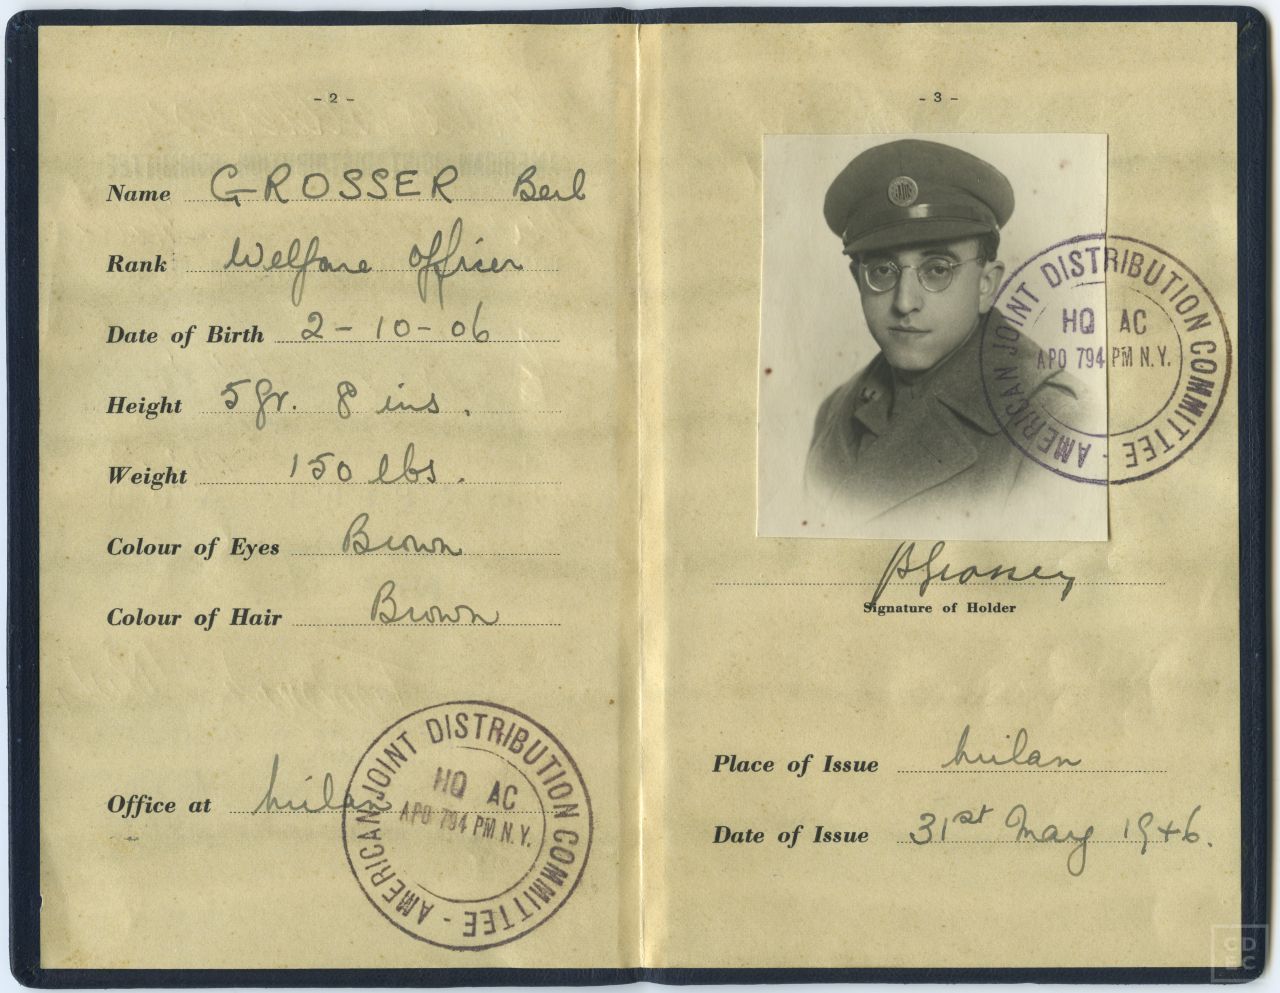 - 2 -
Name GROSSER Berl
Rank Welfare Officer
Date of Birth 2-10-06
Height 5 ft. 8 ins.
Weight 150 lbs.
Colour of Eyes Brown
Colour of Hair Brown
Office at Milan
AMERICAN JOINT DISTRIBUTION COMMITTEE -
HQ AC
APO 794 PM N.Y.
- 3 -
AMERICAN JOINT DISTRIBUTION COMMITTEE -
HQ AC
APO 794 PM N.Y.
BGrosser
Signature of Holder
Place of Issue Milan
Date of Issue 31st May 1946.
CD
EC